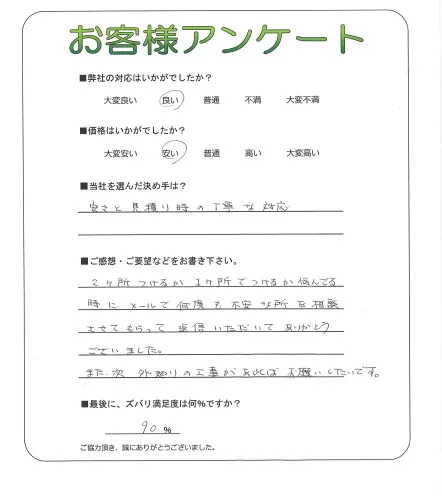 お客様アンケート
■弊社の対応はいかがでしたか？
大変良い 良い 普通 不満 大変不満
■価格はいかがでしたか？
大変安い 安い 普通 高い 大変高い
■当社を選んだ決め手は？
安さと見積り時の丁寧な対応
■ご感想・ご要望などをお書き下さい。
2ヶ所つけるか1ヶ所でつけるか悩んでる
時にメールで何度も不安な所を相談
させてもらって返信いただいてありがとう
ございました。
また次外廻りの工事があればお願いしたいです。
■最後に、ズバリ満足度は何%ですか？
90 %
ご協力頂き、誠にありがとうございました。